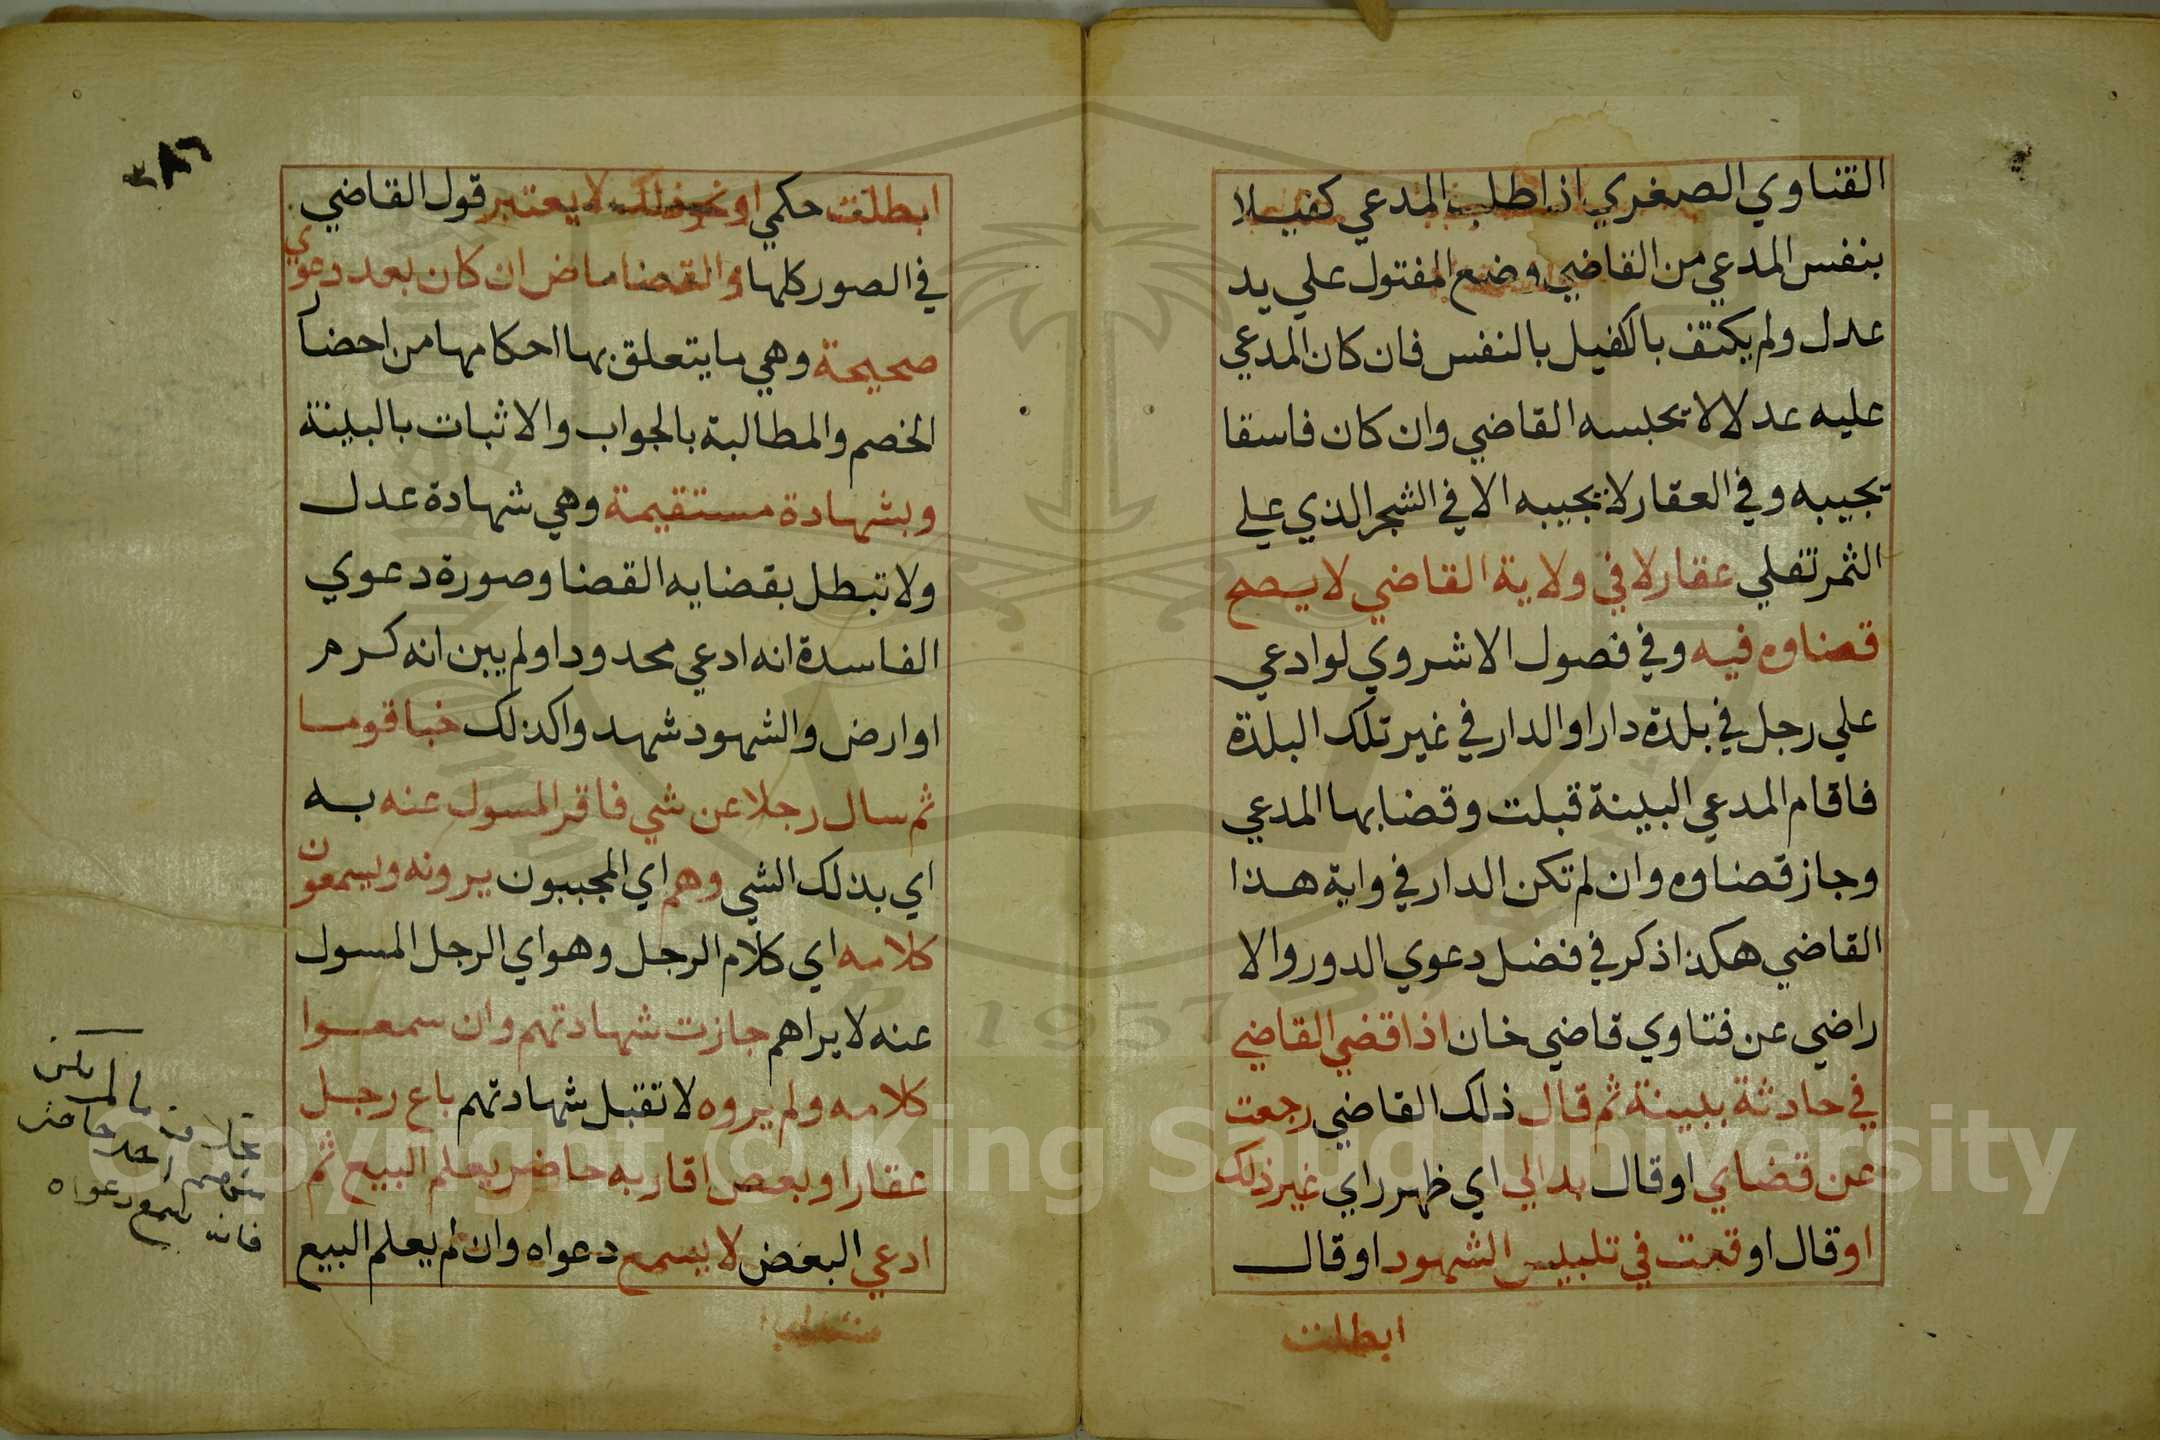 القناوي الصغري اذا طلب المدعي كفيلا
بنفس المدعي من القاضي وضع المفتول علي يد
عدل ولم يكتف بالكفيل بالنفس فان كان المدعي
عليه عدلا لا تحبسه القاضي وان كان فاسقا
تجيبه وفي العقار لا تجيبه الا في الشجر الذي علي
الثمر تقلي عقار لا في ولاية القاضي لا يصح
قضاوه فيه وفي فصول الاشروي لو ادعي
علي رجل في بلدة دارا والدار في غير تلك البلدة
فاقام المدعي البينة قبلت وقضا بها المدعي
وجاز قضاوه وان لم تكن الدار في واية هذا
القاضي هكذا ذكر في فضل دعوي الدور والا
راضي عن فتاوي قاضي خان اذا قضي القاضي
في حادثة ببينة ثم قال ذلك القاضي رجعت
عن قضاي او قال بدالي اي ظهر راي غير ذلك
او قال او قعت في تلبيس الشهود او قال
ابطلت
ابطلت حكمي او نحو ذلك لا يعتبر قول القاضي
في الصور كلها والقضا ماض ان كان بعد دعوي
صحيحة وهي ما يتعلق بها احكامها من احضار
الخصم والمطالبة بالجواب والاثبات بالبينة
وبشهادة مستقيمة وهي شهادة عدل
ولا تبطل بقضايه القضا وصورة دعوي
الفاسدة انه ادعي محدودا ولم يبين انه كرم
او ارض والشهود شهدوا كذلك خبا قوما
ثم سال رجلا عن شي فاقر المسول عنه به
اي بذلك الشي وهم اي المجببون يرونه ويسمعون
كلامه اي كلام الرجل وهو اي الرجل المسول
عنه لا يراهم جازت شهادتهم وان سمعوا
كلامه ولم يروه لا تقبل شهادتهم باع رجل
عقارا وبعض اقاربه حاضر يعلم البيع ثم
ادعي البعض لا يسمع دعواه وان لم يعلم البيع
يكن
احد حاضر
منهم
فانه يسمع دعواه
Copyright © King Saud University
1957